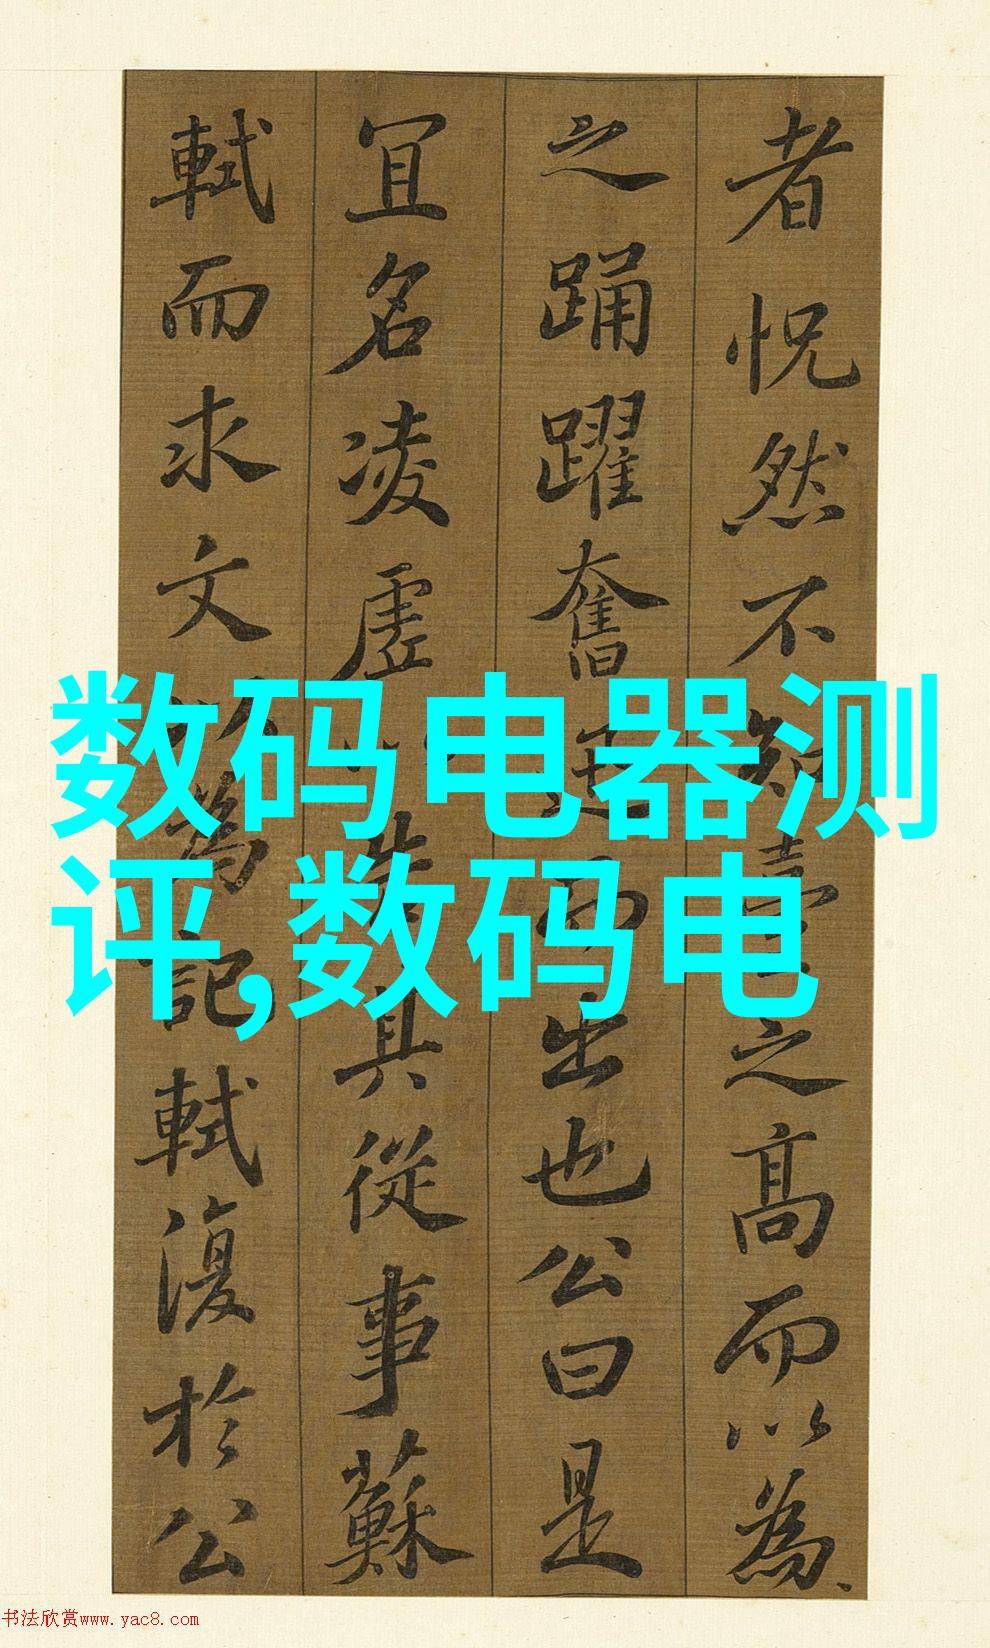 者怳然不知臺之高而以為
之踊躍奮迅而出也公曰是
宜名凌虛以告其從事蘇
軾而求文以為記軾復於公
数码电器测
评,数码电
书法欣赏www.yac8.com